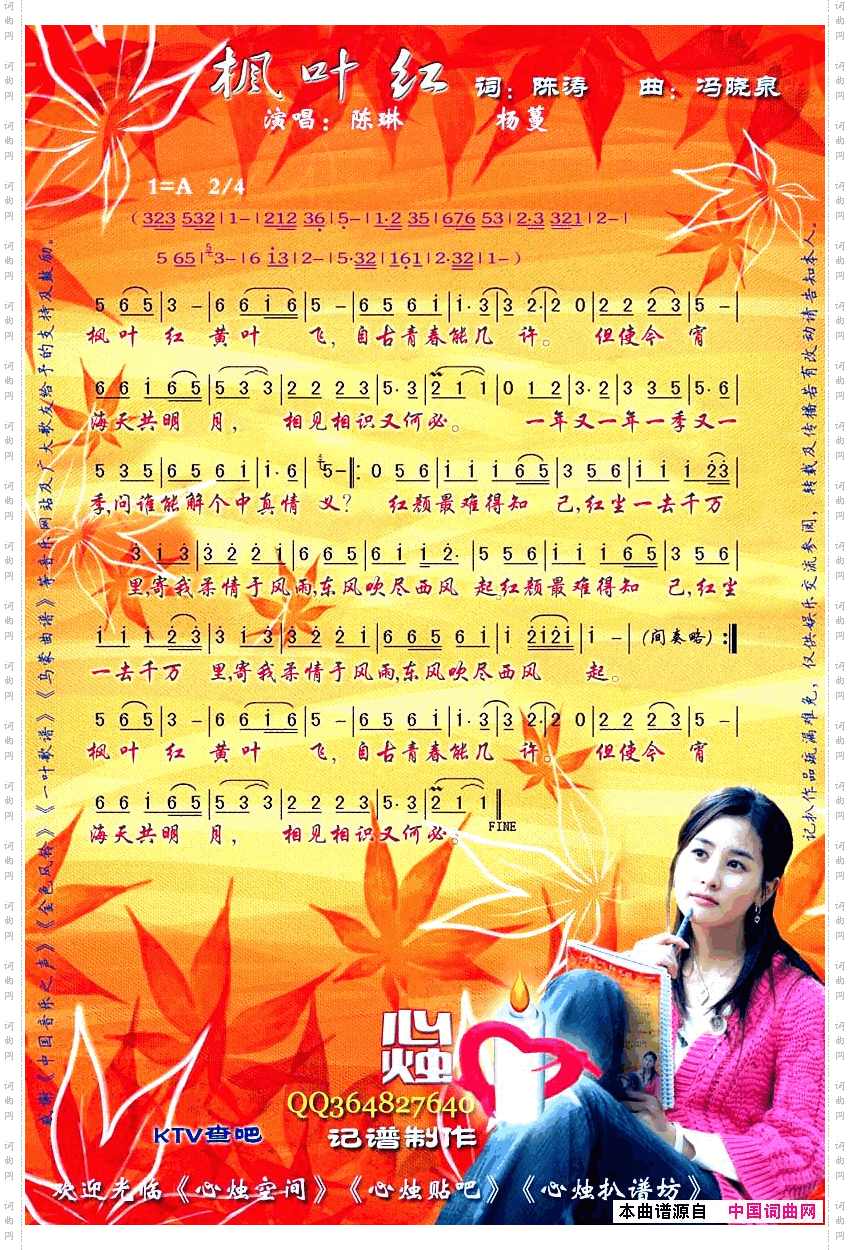 枫叶红 词：陈涛 曲：冯晓泉
演唱：陈琳 杨蔓
1=A 2/4
（323 532｜1-｜212 36｜5-｜1·2 35｜676 53｜2·3 321｜2-｜
5 65｜3-｜6 i3｜2-｜5·32｜161｜2·32｜1-）
5 65｜3 -｜6 6i6｜5 -｜6 5 6 i｜i·3｜3 2·｜2 0｜2 2 2 3｜5 -｜
枫叶 红 黄叶 飞，自古青春能几 许。 但使今 宵
6 6 i 65｜5 3 3｜2 2 2 3｜5·3｜2 1 1｜0 1 2｜3·2｜3 3 5｜5·6｜
海天共明 月， 相见相识又何必。 一年又一年一季又一
5 3 5｜6 5 6 i｜i·6｜5-‖:0 5 6｜i i i 65｜3 5 6｜i i i 23｜
季,问谁能解个中真情 义？ 红颜最难得知 己,红尘一去千万
3 i 3｜3 2 2 i｜6 6 5｜6 i i 2·｜5 5 6｜i i i 65｜3 5 6｜
里,寄我柔情于风雨,东风吹尽西风 起。红颜最难得知 己,红尘
i i i 2 3｜3 i 3｜3 2 2 i｜6 6 5 6 i｜i 2i2i｜i -｜（间奏略）:‖
一去千万 里,寄我柔情于风雨,东风吹尽西风 起。
5 65｜3 -｜6 6i6｜5 -｜6 5 6 i｜i·3｜3 2·2｜2 0｜2 2 2 3｜5 -｜
枫叶 红 黄叶 飞，自古青春能几 许。 但使今 宵
6 6 i 65｜5 3 3｜2 2 2 3｜5·3｜2 1 1‖
FINE
海天共明 月， 相见相识又何必。
感谢《中国音乐之声》《金色风铃》《一叶歌谱》《乌蒙曲谱》等音乐网站及广大歌友给予的支持及鼓励。
记扒作品疏漏难免，仅供娱乐交流参阅，转载及传播若有改动请告知本人。
心烛
QQ364827640
KTV查吧 记谱制作
欢迎光临《心烛空间》《心烛贴吧》《心烛扒谱坊》
本曲谱源自 中国词曲网